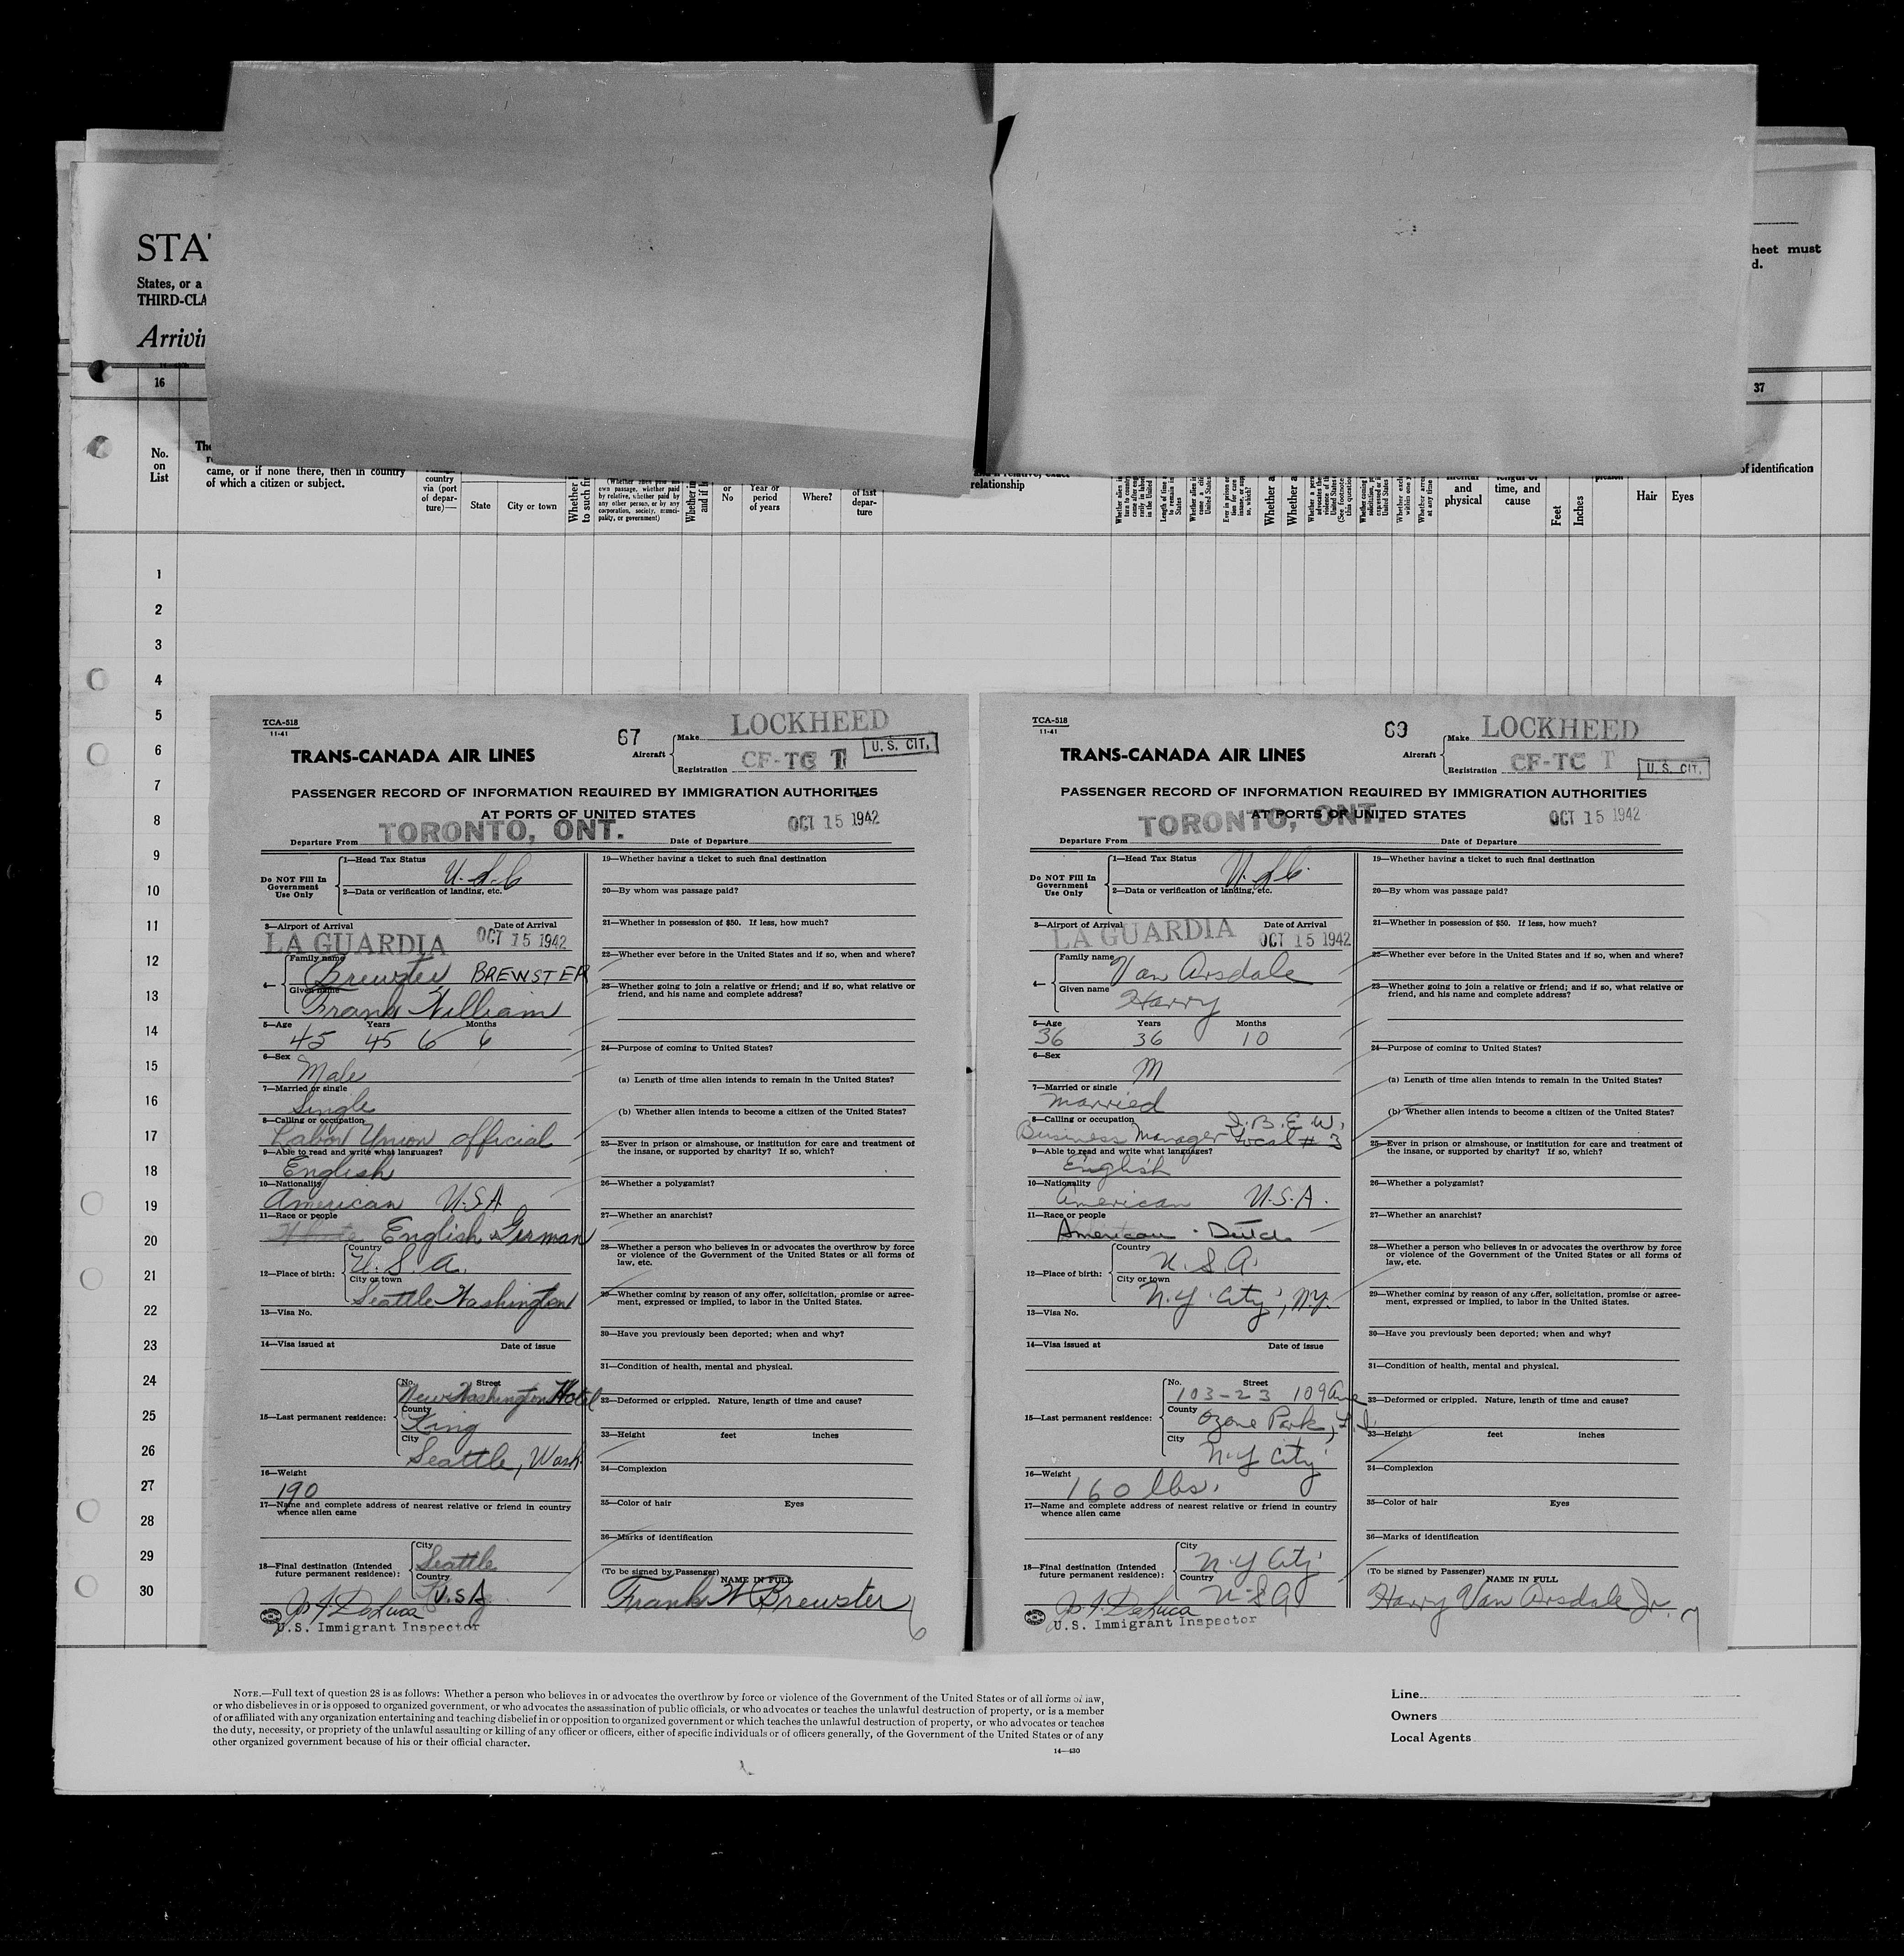 STA
States, or a
THIRD-CLA
Arrivin
heet must
d.
16
37
No.
on
List
The
came, or if none there, then in country
of which a citizen or subject.
country
via (port
of depar-
ture)—
State
City or town
Whether
to such fi
(Whether alien paid his
own passage, whether paid
by relative, whether paid by
any other person, or by any
corporation, society, munici-
pality, or government)
Whether in
and if l
or
No
Year or
period
of years
Where?
of last
depar-
ture
relationship
Whether a
Whether a
mental
and
physical
length of
time, and
cause
Feet
Inches
Hair
Eyes
of identification
1
2
3
4
5
6
7
8
9
10
11
12
13
14
15
16
17
18
19
20
21
22
23
24
25
26
27
28
29
30
TCA-518
11-41
TRANS-CANADA AIR LINES
67
Aircraft
Make LOCKHEED
Registration CF-TC T
U. S. CIT.
PASSENGER RECORD OF INFORMATION REQUIRED BY IMMIGRATION AUTHORITIES
AT PORTS OF UNITED STATES
Departure From TORONTO, ONT. Date of Departure OCT 15 1942
Do NOT Fill In
Government
Use Only
1—Head Tax Status U.S.C
2—Data or verification of landing, etc.
3—Airport of Arrival Date of Arrival
LA GUARDIA OCT 15 1942
4— Family name Brewster BREWSTER
Given name Frank William
5—Age Years Months
45 45 6 6
6—Sex
Male
7—Married or single
Single
8—Calling or occupation
Labor Union official
9—Able to read and write what languages?
English
10—Nationality
American U.S.A
11—Race or people
White English German
12—Place of birth: Country
U. S. A.
City or town
Seattle Washington
13—Visa No.
14—Visa issued at Date of issue
15—Last permanent residence:
No. Street
New Washington Hotel
County
King
City
Seattle, Wash.
16—Weight
190
17—Name and complete address of nearest relative or friend in country
whence alien came
18—Final destination (Intended
future permanent residence):
City
Seattle
Country
U.S.A.
Jos. A. DeLuca
U.S. Immigrant Inspector
19—Whether having a ticket to such final destination
20—By whom was passage paid?
21—Whether in possession of $50. If less, how much?
22—Whether ever before in the United States and if so, when and where?
23—Whether going to join a relative or friend; and if so, what relative or
friend, and his name and complete address?
24—Purpose of coming to United States?
(a) Length of time alien intends to remain in the United States?
(b) Whether alien intends to become a citizen of the United States?
25—Ever in prison or almshouse, or institution for care and treatment of
the insane, or supported by charity? If so, which?
26—Whether a polygamist?
27—Whether an anarchist?
28—Whether a person who believes in or advocates the overthrow by force
or violence of the Government of the United States or all forms of
law, etc.
29—Whether coming by reason of any offer, solicitation, promise or agree-
ment, expressed or implied, to labor in the United States.
30—Have you previously been deported; when and why?
31—Condition of health, mental and physical.
32—Deformed or crippled. Nature, length of time and cause?
33—Height feet inches
34—Complexion
35—Color of hair Eyes
36—Marks of identification
(To be signed by Passenger) NAME IN FULL
Frank W Brewster
6
TCA-518
11-41
TRANS-CANADA AIR LINES
Aircraft
Make LOCKHEED
Registration CF-TC T
U. S. CIT.
PASSENGER RECORD OF INFORMATION REQUIRED BY IMMIGRATION AUTHORITIES
AT PORTS OF UNITED STATES
Departure From TORONTO, ONT. Date of Departure OCT 15 1942
Do NOT Fill In
Government
Use Only
1—Head Tax Status U.S.C.
2—Data or verification of landing, etc.
3—Airport of Arrival Date of Arrival
LA GUARDIA OCT 15 1942
4— Family name Van Arsdale
Given name Harry
5—Age Years Months
36 36 10
6—Sex
M
7—Married or single
Married
8—Calling or occupation I. B. E. W.
Business Manager Local # 3
9—Able to read and write what languages?
English
10—Nationality
American U.S.A.
11—Race or people
American - Dutch
12—Place of birth: Country
U. S. A.
City or town
N.Y. City, N.Y.
13—Visa No.
14—Visa issued at Date of issue
15—Last permanent residence:
No. Street
103-23 109 Ave
County
Ozone Park, L.I.
City
N.Y City
16—Weight
160 lbs.
17—Name and complete address of nearest relative or friend in country
whence alien came
18—Final destination (Intended
future permanent residence):
City
N.Y City
Country
U S A
Jos. A. DeLuca
U.S. Immigrant Inspector
19—Whether having a ticket to such final destination
20—By whom was passage paid?
21—Whether in possession of $50. If less, how much?
22—Whether ever before in the United States and if so, when and where?
23—Whether going to join a relative or friend; and if so, what relative or
friend, and his name and complete address?
24—Purpose of coming to United States?
(a) Length of time alien intends to remain in the United States?
(b) Whether alien intends to become a citizen of the United States?
25—Ever in prison or almshouse, or institution for care and treatment of
the insane, or supported by charity? If so, which?
26—Whether a polygamist?
27—Whether an anarchist?
28—Whether a person who believes in or advocates the overthrow by force
or violence of the Government of the United States or all forms of
law, etc.
29—Whether coming by reason of any offer, solicitation, promise or agree-
ment, expressed or implied, to labor in the United States.
30—Have you previously been deported; when and why?
31—Condition of health, mental and physical.
32—Deformed or crippled. Nature, length of time and cause?
33—Height feet inches
34—Complexion
35—Color of hair Eyes
36—Marks of identification
(To be signed by Passenger) NAME IN FULL
Harry Van Arsdale Jr.
7
NOTE.—Full text of question 28 is as follows: Whether a person who believes in or advocates the overthrow by force or violence of the Government of the United States or of all forms of law,
or who disbelieves in or is opposed to organized government, or who advocates the assassination of public officials, or who advocates or teaches the unlawful destruction of property, or is a member
of or affiliated with any organization entertaining and teaching disbelief in or opposition to organized government or which teaches the unlawful destruction of property, or who advocates or teaches
the duty, necessity, or propriety of the unlawful assaulting or killing of any officer or officers, either of specific individuals or of officers generally, of the Government of the United States or of any
other organized government because of his or their official character.
14—430
Line
Owners
Local Agents